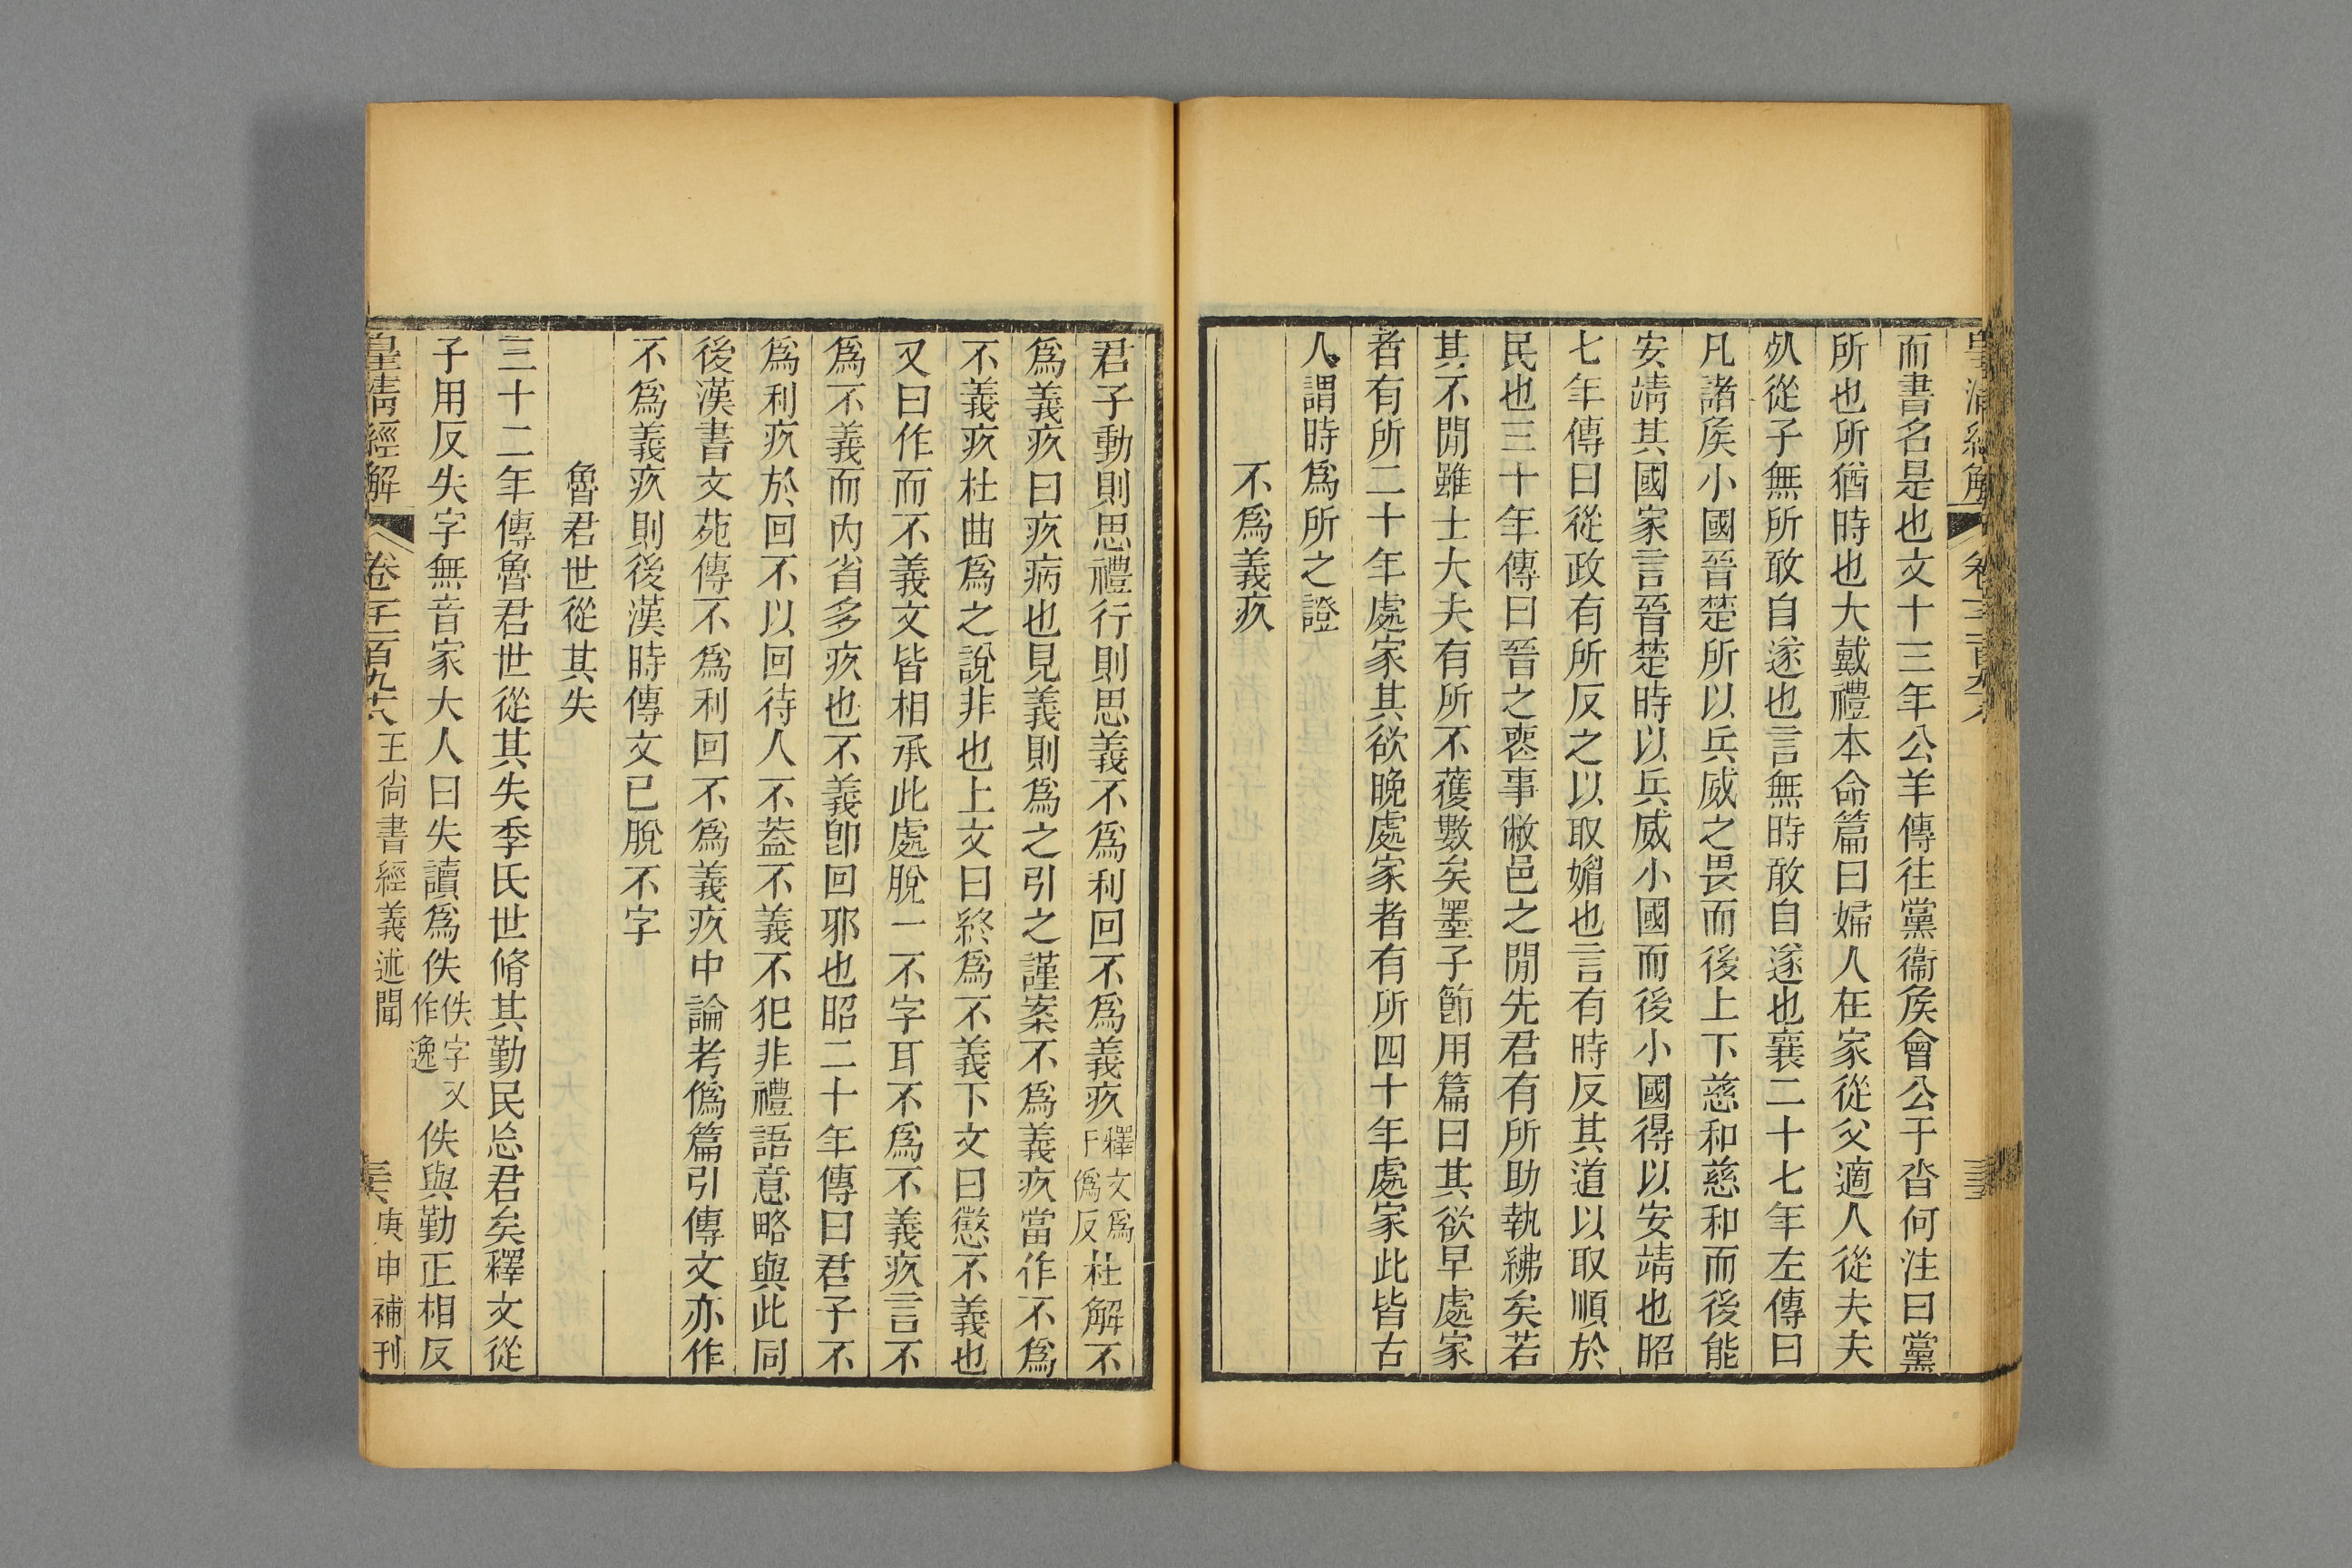 而書名是也文十三年公羊傳往黨衞矦會公于沓何注曰黨
所也所猶時也大戴禮本命篇曰婦人在家從父適人從夫夫
𣦸從子無所敢自遂也言無時敢自遂也襄二十七年左傳曰
凡諸矦小國晉楚所以兵威之畏而後上下慈和慈和而後能
安靖其國家言晉楚時以兵威小國而後小國得以安靖也昭
七年傳曰從政有所反之以取媚也言有時反其道以取順於
民也三十年傳曰晉之喪事敝邑之閒先君有所助執紼矣若
其不閒雖士大夫有所不獲數矣墨子節用篇曰其欲早處家
者有所二十年處家其欲晚處家者有所四十年處家此皆古
人謂時爲所之證
不爲義疚
君子動則思禮行則思義不爲利回不爲義疚釋文爲于僞反杜解不
爲義疚曰疚病也見義則爲之引之謹案不爲義疚當作不爲
不義疚杜曲爲之說非也上文曰終爲不義下文曰懲不義也
又曰作而不義文皆相承此處脫一不字耳不爲不義疚言不
爲不義而內省多疚也不義卽回邪也昭二十年傳曰君子不
爲利疚於回不以回待人不蓋不義不犯非禮語意略與此同
後漢書文苑傳不爲利回不爲義疚中論考僞篇引傳文亦作
不爲義疚則後漢時傳文已脫不字
魯君世從其失
三十二年傳魯君世從其失季氏世脩其勤民忘君矣釋文從
子用反失字無音家大人曰失讀爲佚佚字又作逸佚與勤正相反
皇清經解
卷一千一百九十八
王尙書經義述聞
庚申補刊